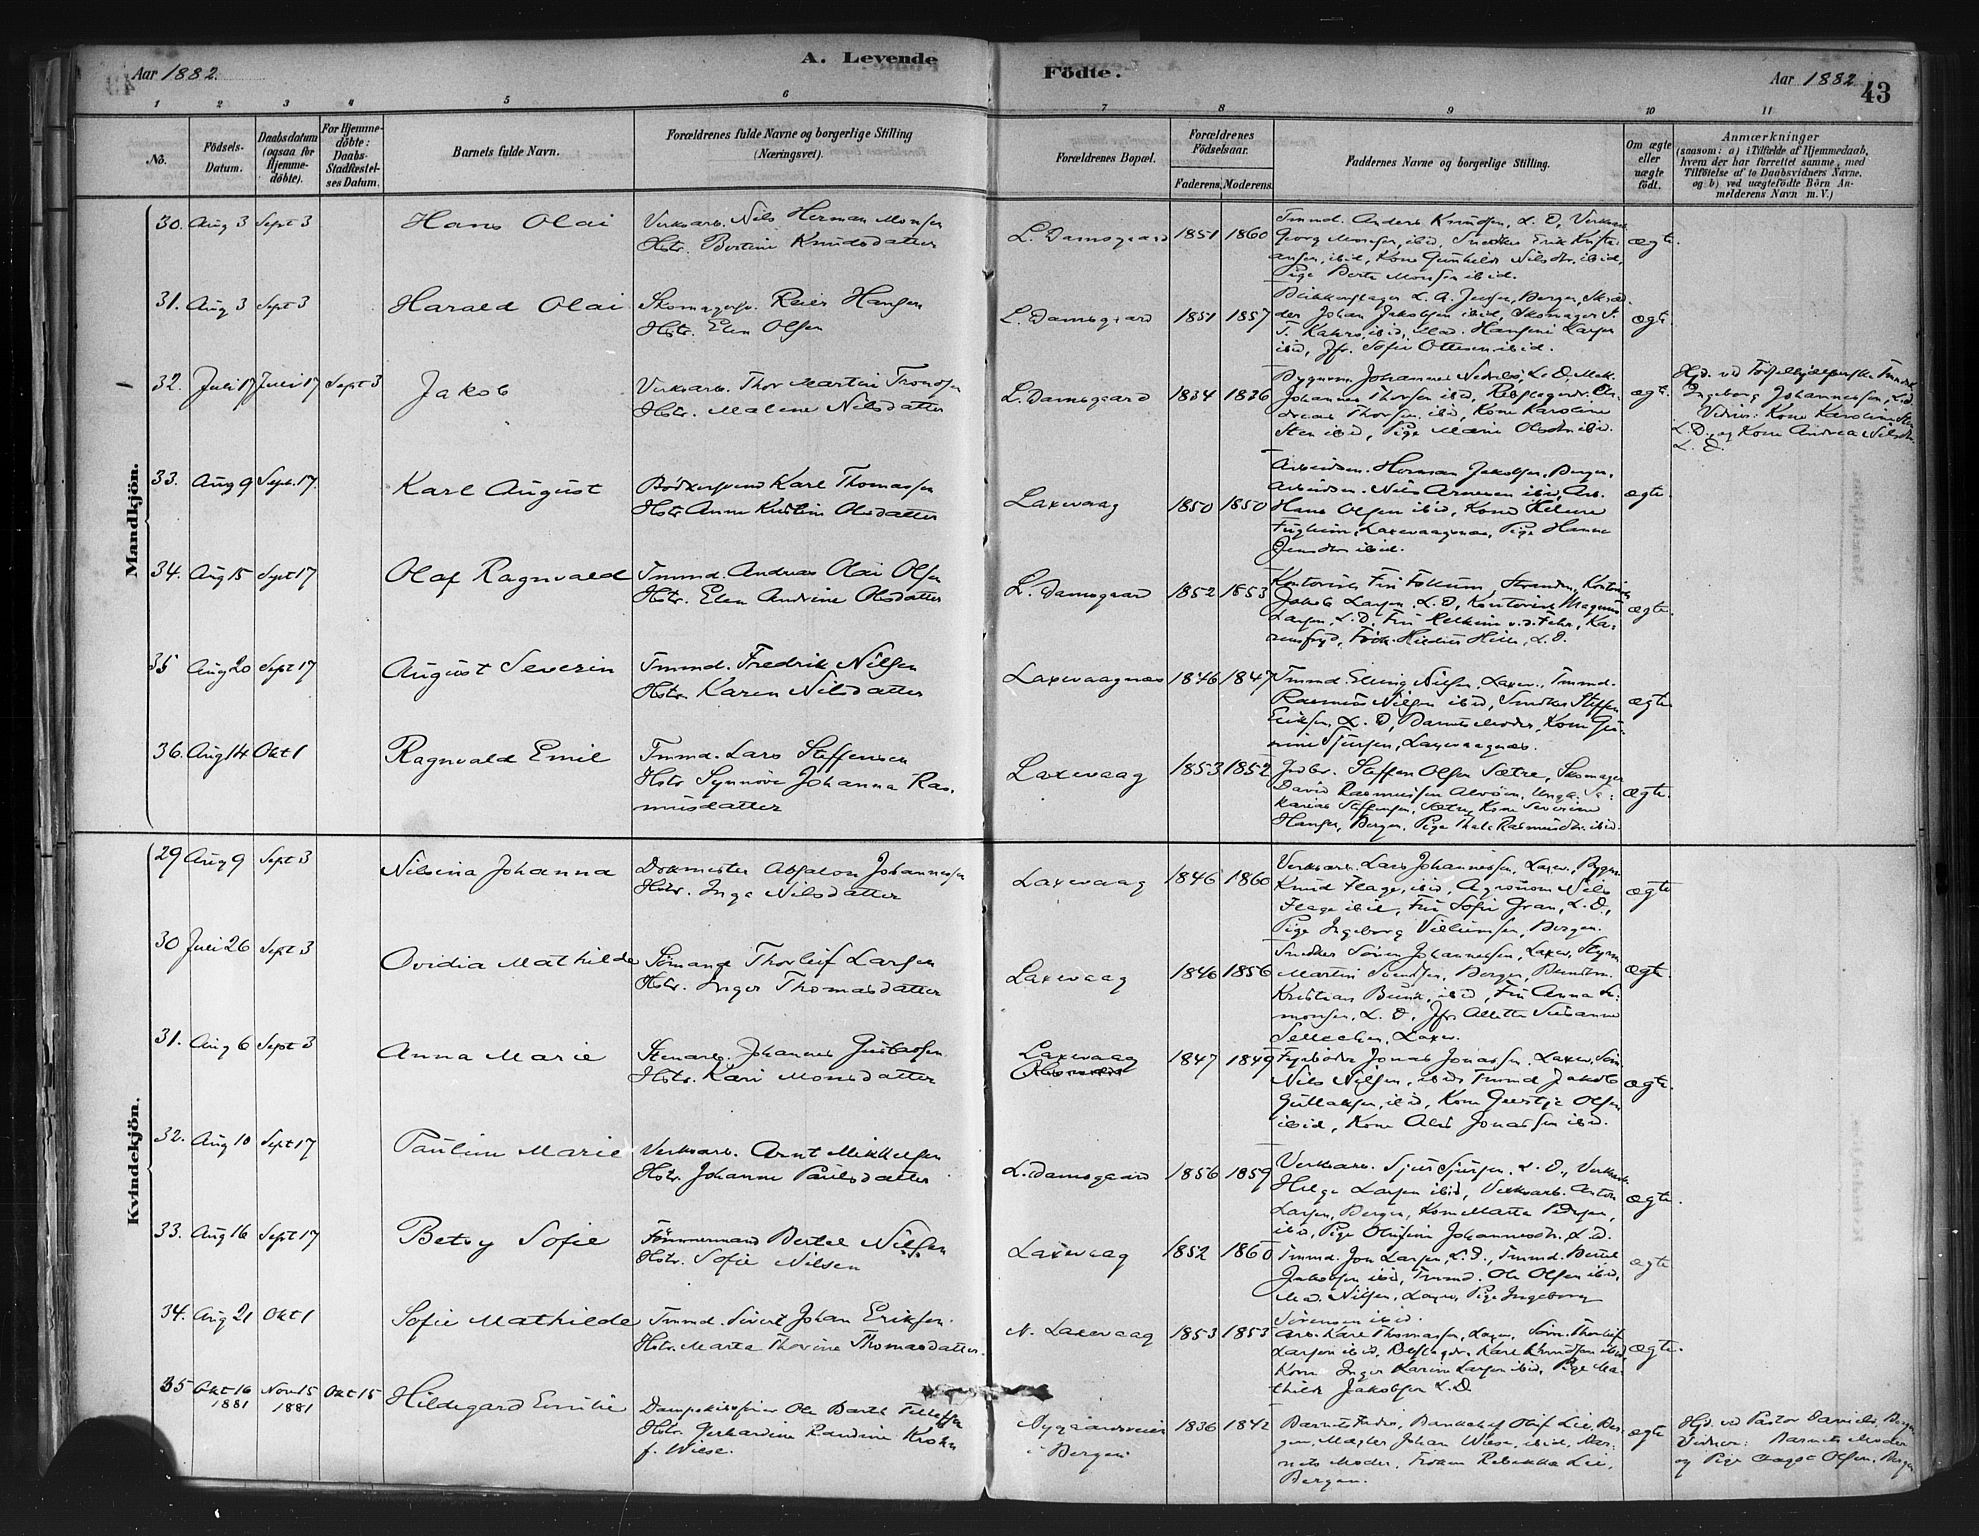 Aar 1882.
A. Levende
Födte.
Aar 1882
43
1 2 3 4 5 6 7 8 9 10 11
No.
Födsels-
Datum.
Daabsdatum
(ogsaa for
Hjemme-
döbte).
For Hjemme-
döbte:
Daabs-
Stadfæstel-
ses Datum.
Barnets fulde Navn.
Forældrenes fulde Navne og borgerlige Stilling
(Næringsvei).
Forældrenes Bopæl.
Forældrenes
Födselsaar.
Faderens. Moderens.
Faddernes Navne og borgerlige Stilling.
Om ægte
eller
uægte
födt.
Anmærkninger
(saasom: a) i Tilfælde af Hjemmedaab,
hvem der har forrettet samme, med
Tilföielse af to Daabsvidners Navne.
og b) ved uægtefödte Börn An-
melderens Navn m.V.)
Mandkjön.
30. Aug 3 Sept 3 Hans Olai
Verksarb. Nils Herman Monsen
Hstr. Bertine Knudsdatter
L. Damsgaard 1851 1860
Tmmd. Anders Knudsen, L. D, Verksarb.
Georg Monsen, ibid, Snedker Erik Kristi-
ansen, ibid, Kone Gunhild Nilsdtr. ibid,
Pige Berte Monsen ibid.
ægte.
31. Aug 3 Sept 3 Harald Olai
Skomagersv. Reier Hansen
Hstr. Elen Olsen
L. Damsgaard 1851 1857
Blikkenslager L. A. Jensen, Bergen, Skræd-
der Johan Jakobsen ibid, Skomager
ibid, Jfr. Sofie Ottesen ibid.
ægte
32. Juli 17 Juli 17 Sept 3 Jakob
Verksarb. Thor Martin Tronsen
Hstr. Malene Nilsdatter
L. Damsgaard 1834 1836
Johannes Thorsen ibid, Rebslagerdr. An-
dreas Thorsen ibid, Kone Karoline
Sten ibid, Pige Marie Olsdtr. ibid.
ægte.
Ingeborg Johannessen, L. D.
Vidner: Kone Karoline Sten
L. D. og Kone Andrea Nilsdtr.
L. D.
33. Aug 9 Sept. 17. Karl August
Bödkersvend Karl Thomassen
Hstr. Anne Kristine Olsdatter
Laxevaag 1850 1850
Arbeidsm. Herman Jakobsen, Bergen,
Arbeidsm. Nils Arnesen ibid, Arb.
Hans Olsen ibid, Kone Helene
Laxevaagnæs, Pige Hanna
Jensdtr. ibid.
ægte.
34. Aug 15 Sept 17 Olaf Ragnvald
Tmmd. Andreas Olai Olsen
Hstr. Elen Andrine Olsdatter
L. Damsgaard 1852 1853
Jakob Larsen, L. D, Kontorist Magnus
Larsen, L. D.
ægte.
35 Aug 20 Sept 17 August Severin
Tmmd. Fredrik Nilsen
Hstr. Karen Nilsdatter
Laxevaagnæs 1846 1847
Tmmd. Elling Nilsen, Laxev., Tmmd.
Rasmus Nilsen ibid, Snedker Steffen
Eriksen, L. D, Barnets Moder, Kone Gu-
rine Sjursen, Laxevaagnæs.
ægte.
36. Aug 14 Okt 1 Ragnvald Emil
Tmmd. Lars Steffensen
Hstr. Synnöve Johanna Ras-
musdatter
Laxevaag 1853 1852
Steffen Olsen Sætre, Skomager
David Rasmussen Alvöen, Ungk. Sa-
karias Steffensen, Sætre, Kone Severine
Hansen, Bergen, Pige Thale Rasmusdtr. ibid.
ægte.
Kvindekjön.
29 Aug 9 Sept 3 Nilsina Johanna
Dokmester Absalon Johannessen
Hstr. Inga Nilsdatter
Laxevaag 1846 1860
Verksarb. Lars Johannessen, Laxev., Bygm.
Knud Flage, ibid, Agronom Nils
Flage ibid, Fru Sofie Gran, L. D.,
Pige Ingeborg Villumsen, Bergen.
ægte
30 Juli 26 Sept 3 Ovidia Mathilde
Sömand Thorleif Larsen
Hstr. Inger Thomasdatter
Laxevaag 1846 1856
Snedker Sören Johannessen, Laxev, Styrm.
Martin Svendsen, Bergen,
Kristian Bunk, ibid, Fru Anna Si-
monsen, L. D, Jfr. Allette Susanne
Laxev.
ægte.
31. Aug 6 Sept 3 Anna Marie
Stenarb. Johannes Gustavsen
Hstr. Kari Monsdatter
Laxevaag
1847 1849
Fyrböder Jonas Jonassen, Laxev, Söm.
Nils Nilsen, ibid, Tmmd Jakob
Gullaksen, ibid, Kone Geertje Olsen
ibid, Kone Jonassen ibid.
ægte.
32. Aug 10 Sept 17 Pauline Marie
Verksarb. Arnt Mikkelsen
Hstr. Johanne Paulsdatter
L. Damsgaard 1856 1859
Verksarb. Sjur Sjursen, L. D., Verksarb.
Helge Larsen ibid, Verksarb. Anton
Larsen, Bergen, Kone Marta Pedersen,
ibid, Pige Olufine Johannesdtr. L. D.
ægte.
33. Aug 16 Sept 17 Betsy Sofie
Tömmermand Bertel Nilsen
Hstr. Sofie Nilsen
Laxevaag 1852 1860
Tmmd. Jon Larsen, L. D., Tmmd. Bertel
Jakobsen ibid, Tmmd. Ole Olsen ibid,
Mad. Nilsen, Laxev, Pige Ingeborg
Sörensen ibid.
ægte
34. Aug 21 Okt 1 Sofie Mathilde
Tmmd. Sivert Johan Eriksen.
Hstr. Marta Thorine Thomasdatter.
N. Laxevaag 1853 1853
Arb. Karl Thomassen, Laxev, Söm. Thorleif
Larsen ibid, Rebslagerdr. Karl Knudsen ibid
Kone Inger Karine Larsen ibid, Pige Ma-
thilde Jakobsen L. D.
ægte.
35 Okt 16 Nov 15 Okt 15 Hildegard Emilie
1881 1881
Dampskibsförer Ole Barth Tellefsen
Hstr. Gerhardine Randine Krohn
f. Wiese.
Nygaardsveien
i Bergen
1836 1842
Barnets Fader, Bankchef Oluf Lie, Ber-
gen, Mægler Johan Wiese, ibid, Bar-
nets Moder, Fröken Rebekka Lie,
Bergen.
ægte
Hjd. ved Pastor Daniels, Bergen
Vidner: Barnets Moder
og Pige Aagot Olsen, Bergen